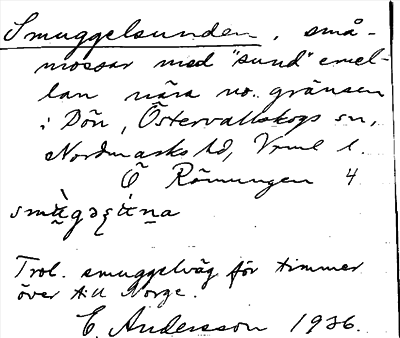 Smuggelsunden, små-
mossar med "sund" emel-
lan nära no. gränsen
i Dön, Östervallskogs sn,
Nordmarks hd, Vrml l.
Ö Römungen 4
Trol. smuggelväg för timmer
över till Norge.
E. Andersson 1936.